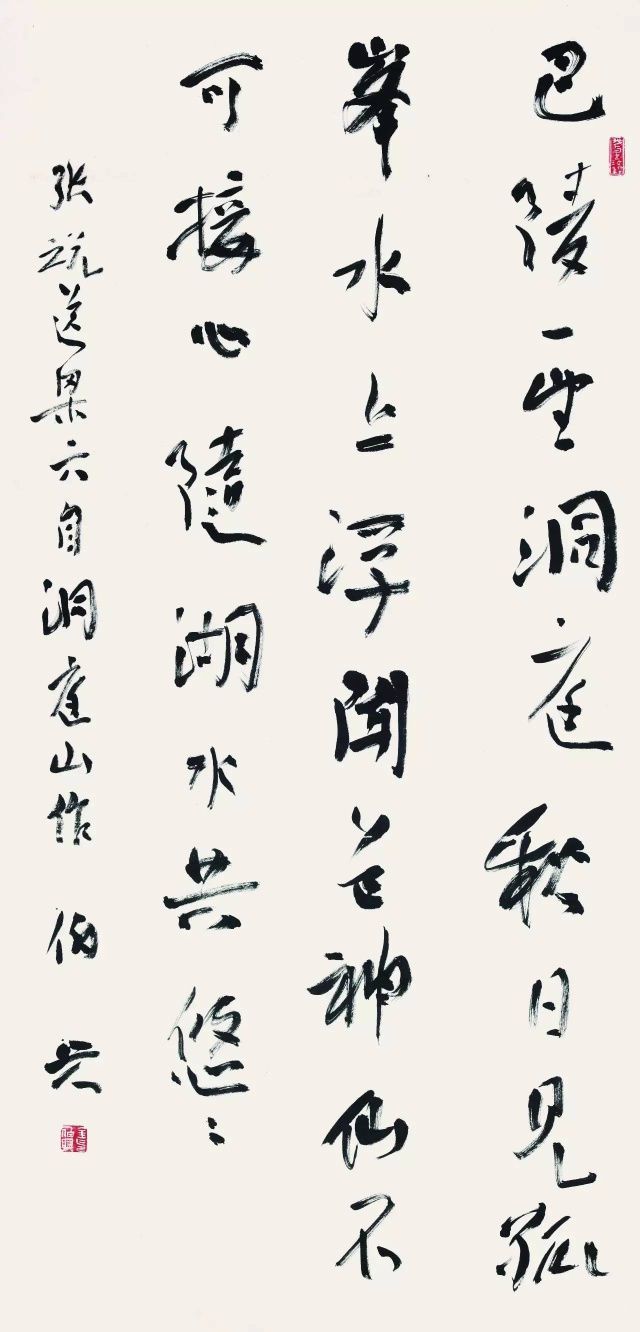 巴陵一望洞庭秋日见孤
峯水上浮闻道神仙不
可接心隨湖水共悠々
张说送梁六自洞庭山作 伯兴